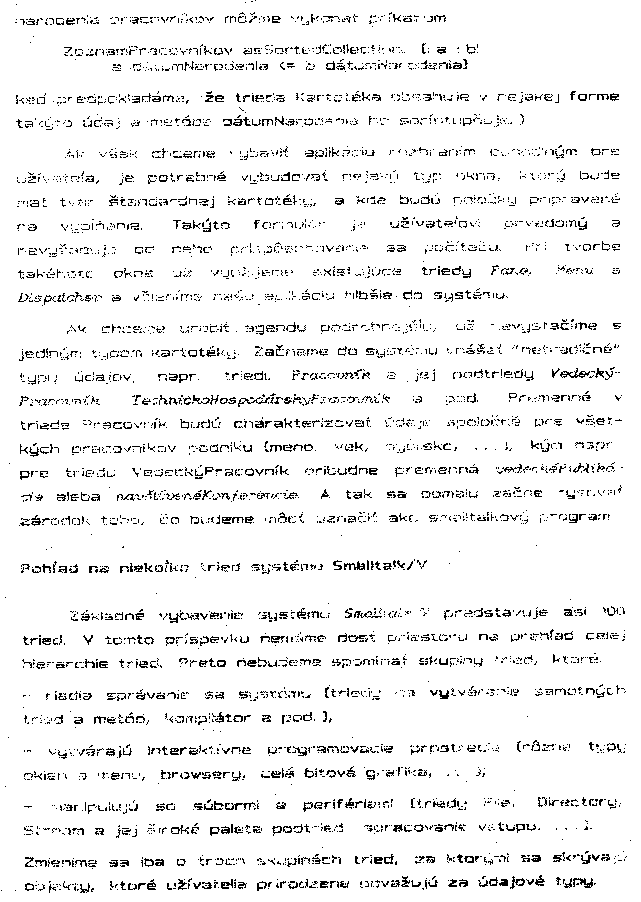 narodenia pracovníkov môžme vykonať príkazom
ZoznamPracovníkov asSortedCollection: [: a : b!
a dátumNarodenia <= b dátumNarodenia]
keď predpokladáme, že trieda Kartotéka obsahuje v nejakej forme
takýto údaj a metóda dátumNarodenia ho sprístupňuje.)
Ak však chceme vybaviť aplikáciu rozhraním vhodným pre
užívateľa, je potrebné vybudovať nejaký typ okna, ktorý bude
mať tvar štandardnej kartotéky, a kde budú položky pripravené
na vypĺňanie. Takýto formulár je užívateľovi privedomý a
nevyžaduje od neho prispôsobovanie sa počítaču. Pri tvorbe
takéhoto okna už využijeme existujúce triedy Pane, Menu a
Dispatcher a včleníme našu aplikáciu hlbšie do systému.
Ak chceme urobiť agendu podrobnejšiu, už nevystačíme s
jediným typom kartotéky. Začneme do systému vnášať "netradičné"
typy údajov, napr. triedu Pracovník a jej podtriedy Vedecký-
Pracovník, TechnickoHospodárskyPracovník a pod. Premenné v
triede Pracovník budú charakterizovať údaje spoločné pre všet-
kých pracovníkov podniku (meno, vek, bydlisko, ...), kým napr.
pre triedu VedeckýPracovník pribudne premenná vedeckéPubliká-
cie alebo navštívenéKonferencie. A tak sa pomaly začne rysovať
zárodok toho, čo budeme môcť označiť ako smalltalkový program.
Pohľad na niekoľko tried systému Smalltalk/V
Základné vybavenie systému Smalltalk V predstavuje asi 100
tried. V tomto príspevku nemáme dosť priestoru na prehľad celej
hierarchie tried. Preto nebudeme spomínať skupiny tried, ktoré:
- riadia správanie sa systému (triedy na vytváranie samotných
tried a metód, kompilátor a pod.),
- vytvárajú interaktívne programovacie prostredie (rôzne typy
okien a menu, browsery, celá bitová grafika, ...),
- manipulujú so súbormi a perifériami (triedy File, Directory,
Stream a jej široká paleta podtried, spracovanie vstupu, ...).
Zmienime sa iba o troch skupinách tried, za ktorými sa skrývajú
objekty, ktoré užívatelia prirodzene považujú za údajové typy.